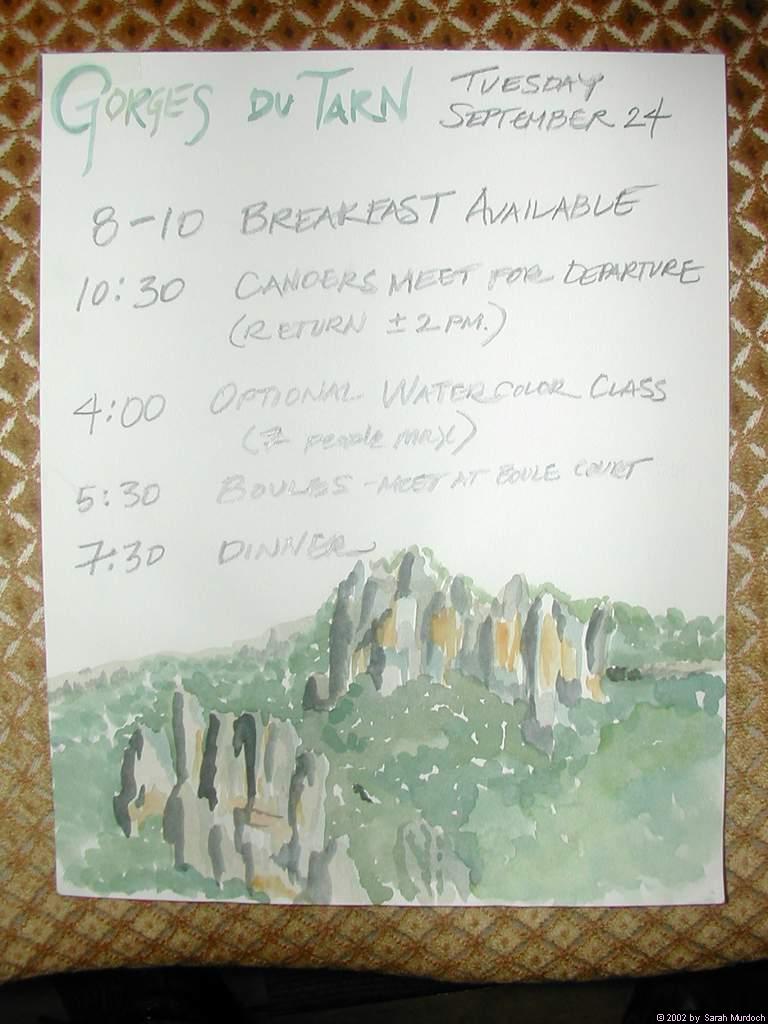 GORGES DU TARN
TUESDAY
SEPTEMBER 24
8-10 BREAKFAST AVAILABLE
10:30 CANOERS MEET FOR DEPARTURE
(RETURN ± 2 PM.)
4:00 OPTIONAL WATERCOLOR CLASS
(7 people max)
5:30 BOULES - MEET AT BOULE COURT
7:30 DINNER
© 2002 by Sarah Murdoch